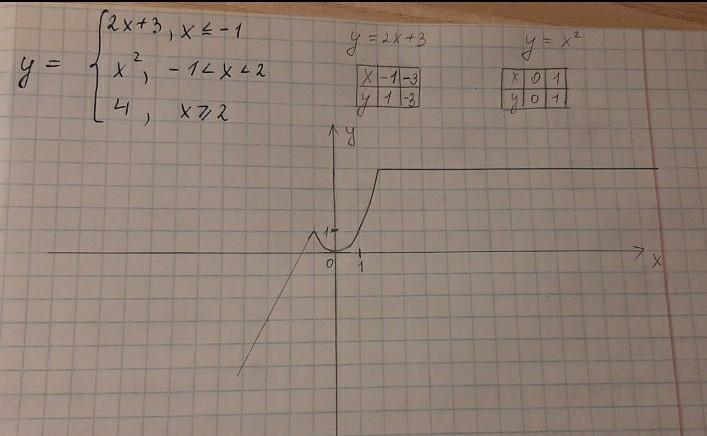 y = { 2x+3, x ≤ -1
x², -1 < x < 2
4, x ⩾ 2
y = 2x+3
x -1 -3
y 1 -3
y = x²
x 0 1
y 0 1
y
1
0 1 x